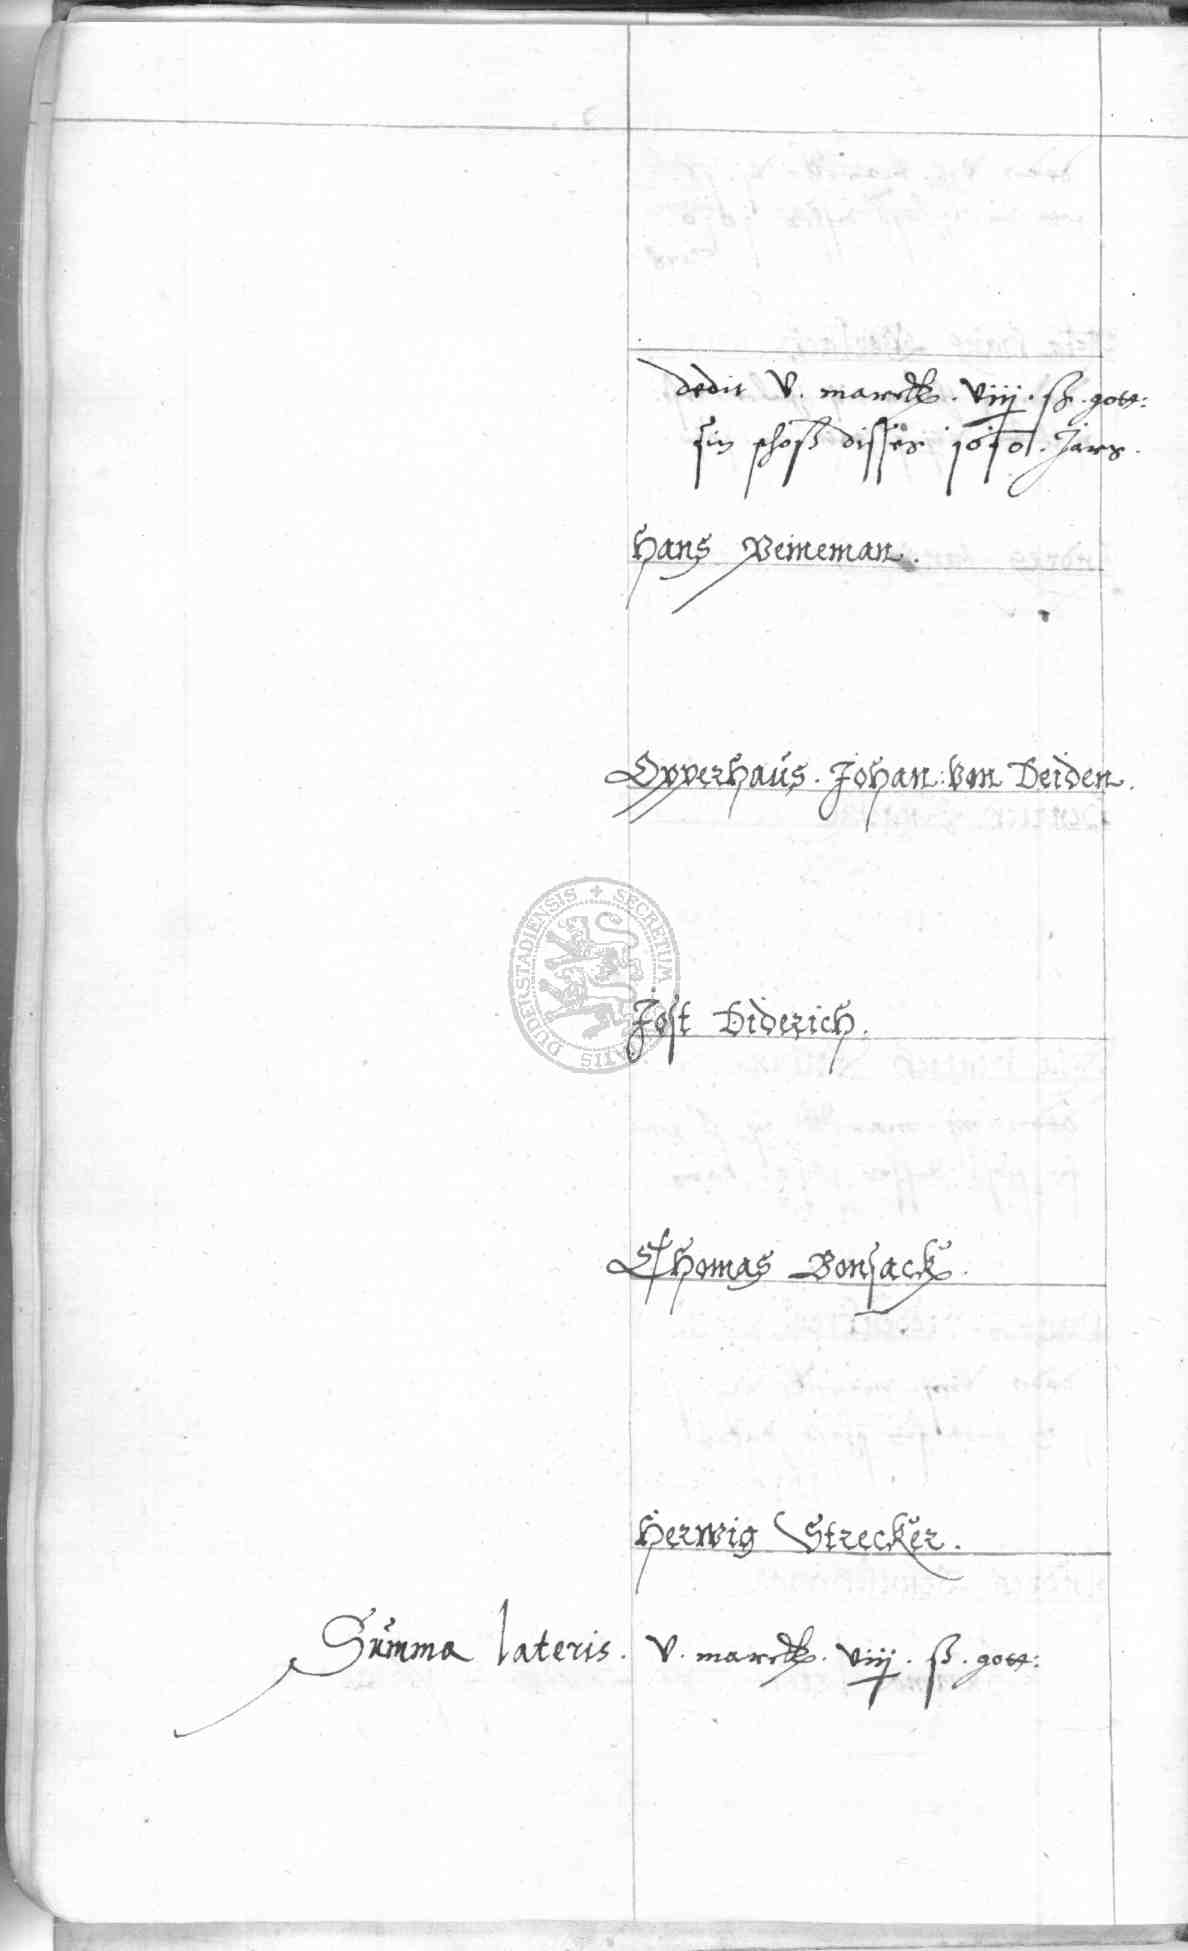 dedit v. marck. viiij. ß. gott:
sin schoß disses 1610. Jars.
Hans Weineman.
Opperhaus. Johan: von Deiden.
DUDERSTADIENSIS + SECRETUM
Jost Diderich.
Thomas Bonsack.
Herwig Strecker.
Summa lateris. v. marck. viiij. ß. gott: